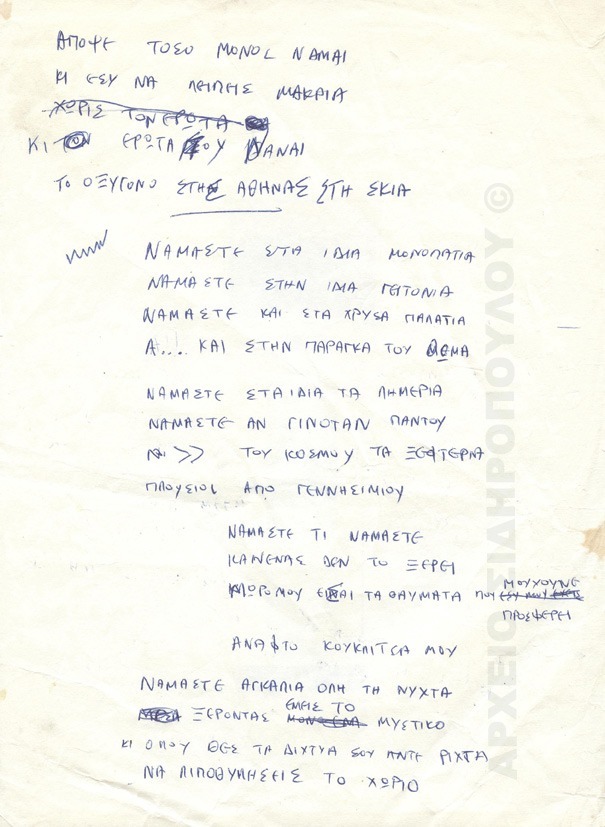 ΑΠΟΨΕ ΤΟΣΟ ΜΟΝΟΣ ΝΑΜΑΙ
ΚΙ ΕΣΥ ΝΑ ΛΕΙΠΕΙΣ ΜΑΚΡΙΑ
ΧΩΡΙΣ ΤΟΝ ΕΡΩΤΑ
ΚΙ ΤΟΝ ΕΡΩΤΑ ΣΟΥ ΝΑΝΑΙ
ΤΟ ΟΞΥΓΟΝΟ ΣΤΗΣ ΑΘΗΝΑΣ ΣΤΗ ΣΚΙΑ
ΝΑΜΑΣΤΕ ΣΤΑ ΙΔΙΑ ΜΟΝΟΠΑΤΙΑ
ΝΑΜΑΣΤΕ ΣΤΗΝ ΙΔΙΑ ΓΕΙΤΟΝΙΑ
ΝΑΜΑΣΤΕ ΚΑΙ ΣΤΑ ΧΡΥΣΑ ΠΑΛΑΤΙΑ
Α.... ΚΑΙ ΣΤΗΝ ΠΑΡΑΓΚΑ ΤΟΥ ΘΩΜΑ
ΝΑΜΑΣΤΕ ΣΤΑ ΙΔΙΑ ΤΑ ΛΗΜΕΡΙΑ
ΝΑΜΑΣΤΕ ΑΝ ΓΙΝΟΤΑΝ ΠΑΝΤΟΥ
>> ΤΟΥ ΚΟΣΜΟΥ ΤΑ ΞΕΦΤΕΡΙΑ
ΠΛΟΥΣΙΟΙ ΑΠΟ ΓΕΝΝΗΣΙΜΙΟΥ
ΝΑΜΑΣΤΕ ΤΙ ΝΑΜΑΣΤΕ
ΚΑΝΕΝΑΣ ΔΕΝ ΤΟ ΞΕΡΕΙ
ΜΩΡΟ ΜΟΥ ΕΙΝΑΙ ΤΑ ΘΑΥΜΑΤΑ ΠΟΥ ΕΣΥ ΜΟΥ ΕΧΕΙΣ ΜΟΥΧΟΥΝΕ
ΠΡΟΣΦΕΡΕΙ
ΑΝΑΦΤΟ ΚΟΥΚΛΙΤΣΑ ΜΟΥ
ΝΑΜΑΣΤΕ ΑΓΚΑΛΙΑ ΟΛΗ ΤΗ ΝΥΧΤΑ
ΞΕΡΟΝΤΑΣ ΕΜΕΙΣ ΤΟ ΜΥΣΤΙΚΟ
ΚΙ ΟΠΟΥ ΘΕΣ ΤΑ ΔΙΧΤΥΑ ΣΟΥ ΑΝΤΕ ΡΙΧΤΑ
ΝΑ ΛΙΠΟΘΥΜΗΣΕΙΣ ΤΟ ΧΩΡΙΟ
ΑΡΧΕΙΟ ΣΙΔΗΡΟΠΟΥΛΟΥ ©